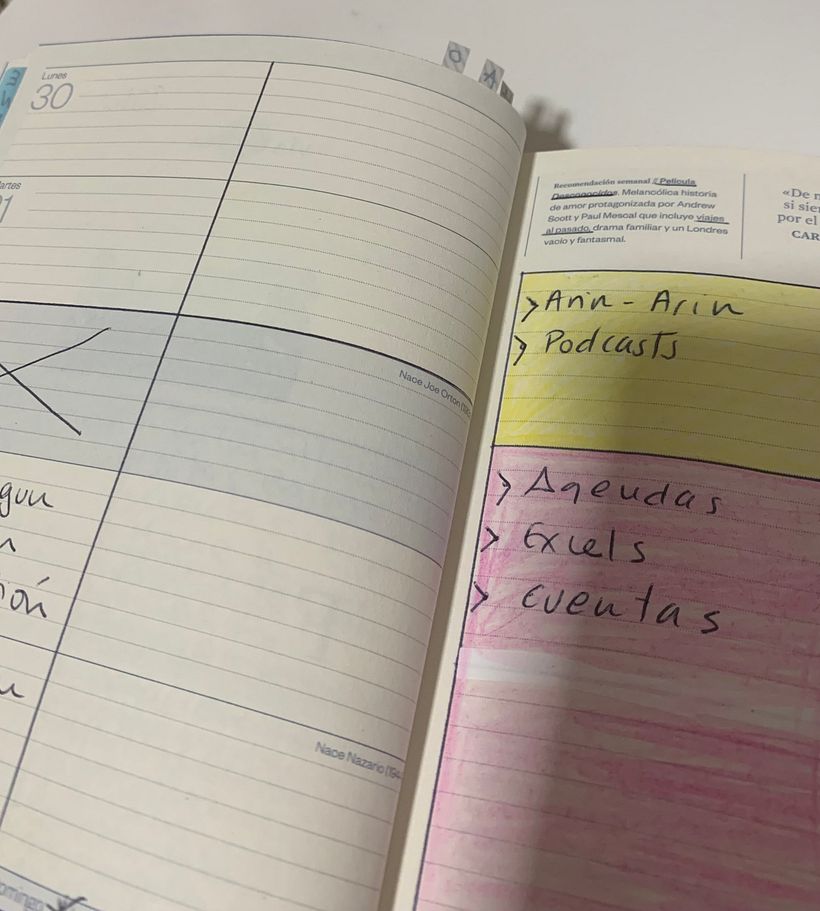 O
A
Lunes
30
Nace Joe Orton
ión
Nace Nazario
Recomendación semanal // Película
Desconocidos. Melancólica historia
de amor protagonizada por Andrew
Scott y Paul Mescal que incluye viajes
al pasado, drama familiar y un Londres
vacío y fantasmal.
«De
si
por el
CAR
> Arin - Arin
> Podcasts
> Agendas
> Excels
> cuentas